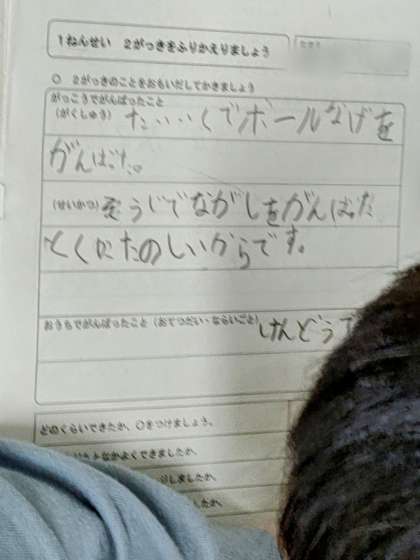 1ねんせい 2がっきをふりかえりましょう
○ 2がっきのことをおもいだしてかきましょう
がっこうでがんばったこと
(がくしゅう) たいいくでボールなげを
がんばた。
(せいかつ) そうじでながしをがんばた
とくにたのしいからです。
おうちでがんばったこと (おてつだい・ならいごと) けんどうで
どのくらいできたか、○をつけましょう。
なかよくできましたか。
しましたか。
たか。